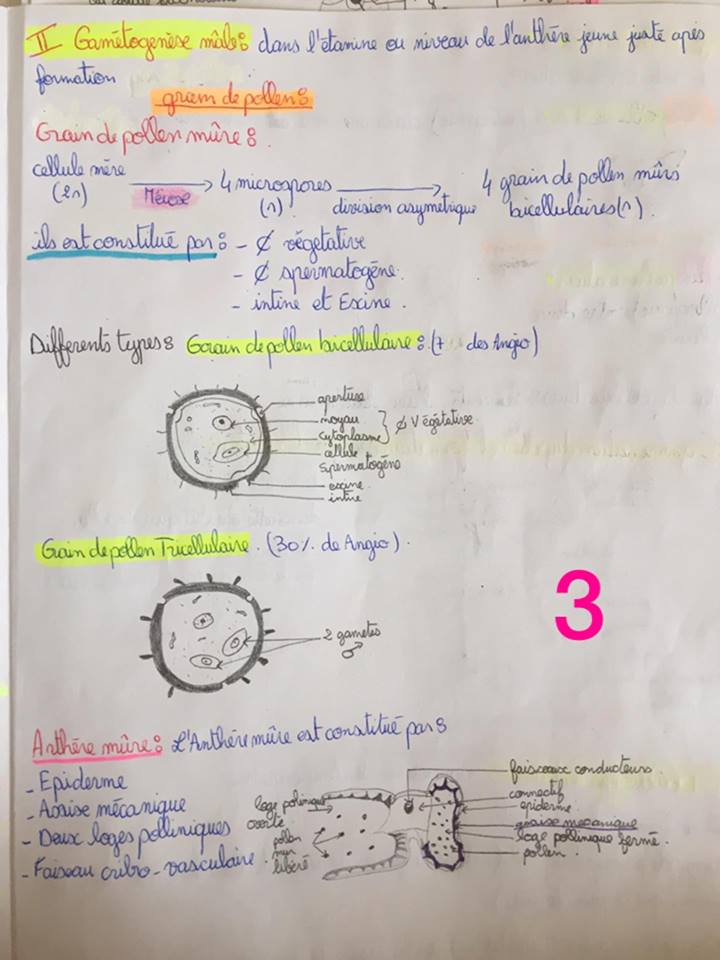 II Gamétogenèse mâle : dans l'étamine au niveau de l'anthère jeune juste apès
formation
grain de pollen :
Grain de pollen mûre :
cellule mère (2n) → Méiose → 4 microspores (n) → division asymétrique → 4 grain de pollen mûrs bicellulaires (n).
ils est constitué par : - ₵ végétative
- ₵ spermatogène.
- intine et Exine.
Differents types : Grain de pollen bicellulaire : (7 des Angio)
aperture
noyau
cytoplasme
₵ Végétative
cellule
spermatogène
exine
intine
Grain de pollen Tricellulaire. (30% de Angio).
2 gametes
♂
3
Anthère mûre : L'Anthère mûre est constitué par :
- Epiderme
- Assise mécanique
- Deux loges polliniques
- Faiseau cribo-vasculaire.
loge polinique
ouverte
pollen
mur
libéré
faisceaux conducteurs
connectif
epiderme
assise mecanique
loge pollinique fermé.
pollen.